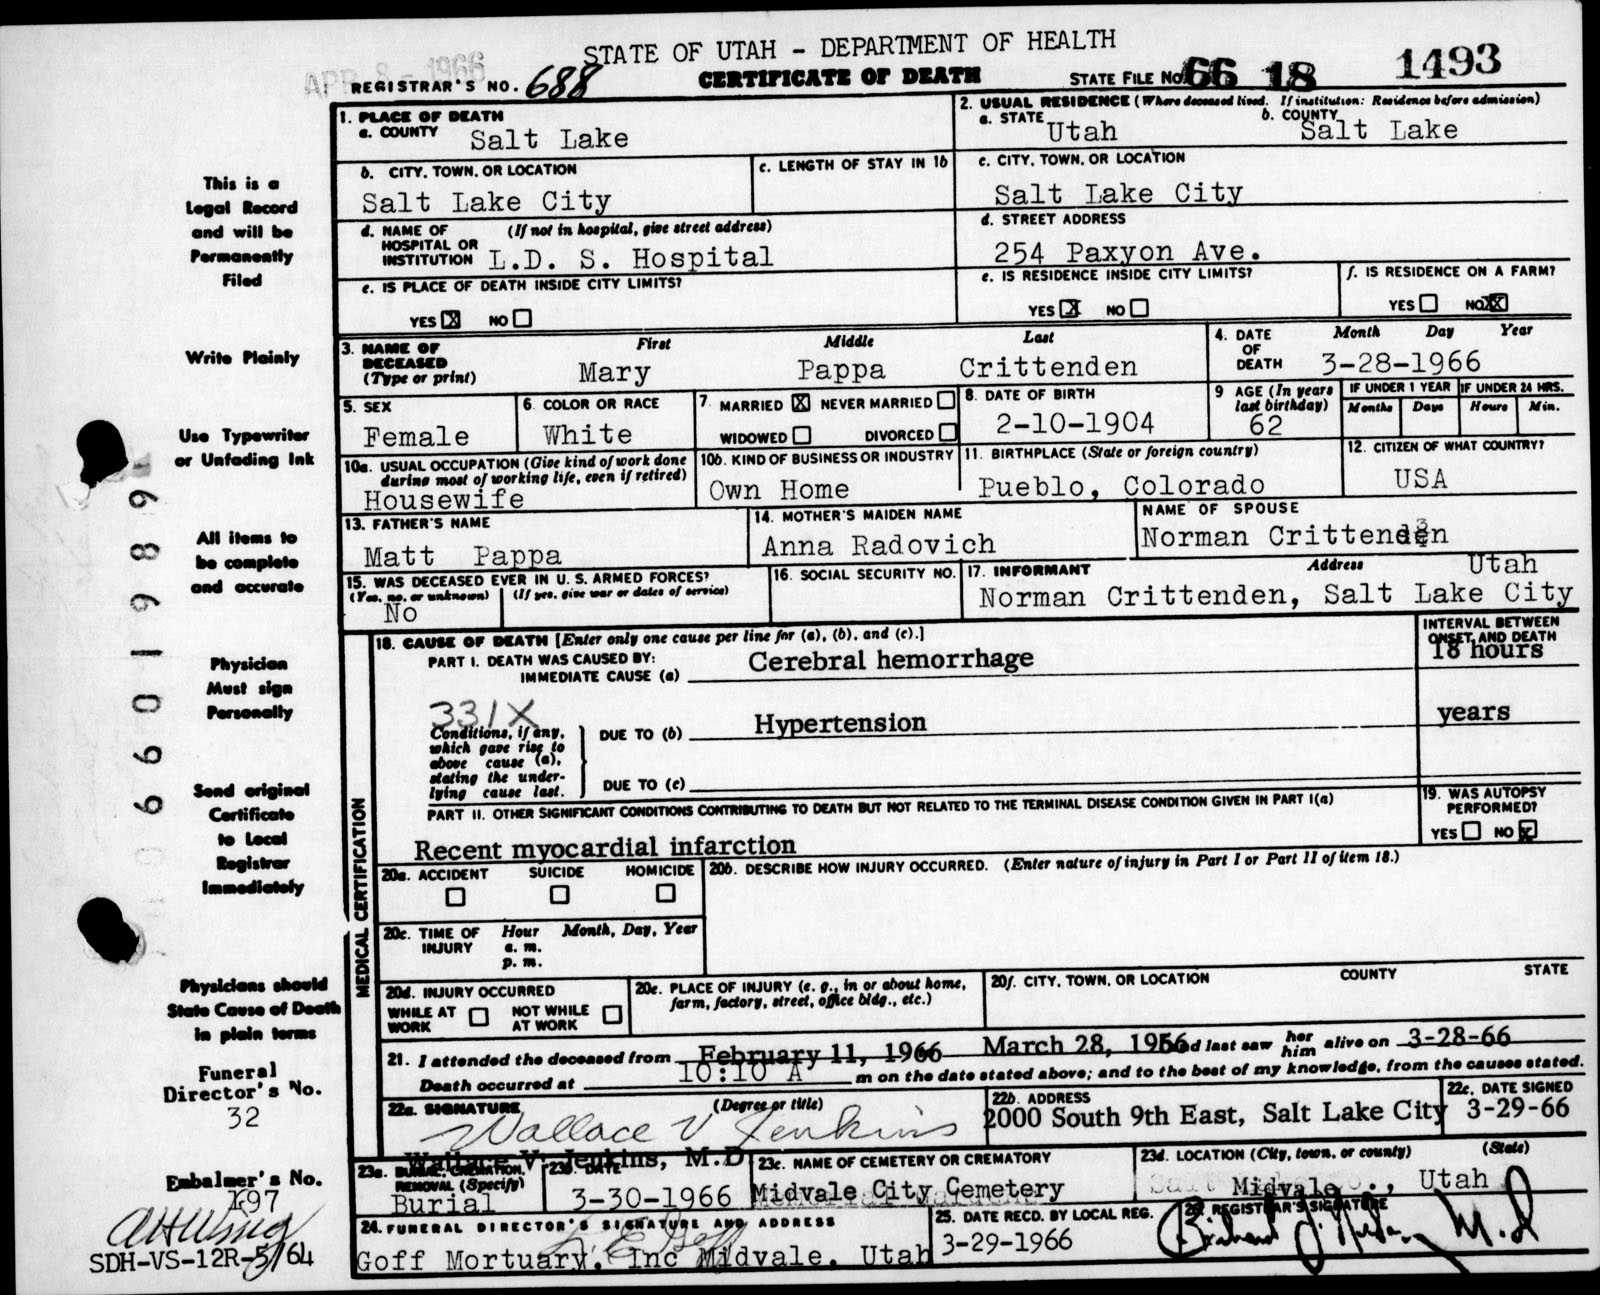 STATE OF UTAH - DEPARTMENT OF HEALTH
APR 8 - 1966
REGISTRAR'S NO. 688 CERTIFICATE OF DEATH STATE FILE NO. 66 18 1493
1. PLACE OF DEATH
a. COUNTY Salt Lake
2. USUAL RESIDENCE (Where deceased lived. If institution: Residence before admission)
a. STATE Utah b. COUNTY Salt Lake
b. CITY, TOWN, OR LOCATION Salt Lake City
c. LENGTH OF STAY IN 1b
c. CITY, TOWN, OR LOCATION Salt Lake City
d. NAME OF HOSPITAL OR INSTITUTION (If not in hospital, give street address) L.D. S. Hospital
d. STREET ADDRESS 254 Paxyon Ave.
e. IS PLACE OF DEATH INSIDE CITY LIMITS?
YES X NO
e. IS RESIDENCE INSIDE CITY LIMITS?
YES X NO
f. IS RESIDENCE ON A FARM?
YES NO XX
3. NAME OF DECEASED (Type or print) First Middle Last
Mary Pappa Crittenden
4. DATE OF DEATH Month Day Year
3-28-1966
5. SEX Female
6. COLOR OR RACE White
7. MARRIED X NEVER MARRIED
WIDOWED DIVORCED
8. DATE OF BIRTH 2-10-1904
9 AGE (In years last birthday) 62
IF UNDER 1 YEAR Months Days
IF UNDER 24 HRS. Hours Min.
10a. USUAL OCCUPATION (Give kind of work done during most of working life, even if retired)
Housewife
10b. KIND OF BUSINESS OR INDUSTRY Own Home
11. BIRTHPLACE (State or foreign country) Pueblo, Colorado
12. CITIZEN OF WHAT COUNTRY? USA
13. FATHER'S NAME Matt Pappa
14. MOTHER'S MAIDEN NAME Anna Radovich
NAME OF SPOUSE Norman Crittenden
15. WAS DECEASED EVER IN U. S. ARMED FORCES?
(Yes, no, or unknown) (If yes, give war or dates of service)
No
16. SOCIAL SECURITY NO.
17. INFORMANT Address Utah
Norman Crittenden, Salt Lake City
18. CAUSE OF DEATH [Enter only one cause per line for (a), (b), and (c).]
PART I. DEATH WAS CAUSED BY:
IMMEDIATE CAUSE (a) Cerebral hemorrhage
INTERVAL BETWEEN ONSET AND DEATH
18 hours
331X
Conditions, if any, which gave rise to above cause (a), stating the underlying cause last.
DUE TO (b) Hypertension years
DUE TO (c)
PART II. OTHER SIGNIFICANT CONDITIONS CONTRIBUTING TO DEATH BUT NOT RELATED TO THE TERMINAL DISEASE CONDITION GIVEN IN PART I(a)
Recent myocardial infarction
19. WAS AUTOPSY PERFORMED?
YES NO X
MEDICAL CERTIFICATION
20a. ACCIDENT SUICIDE HOMICIDE
20b. DESCRIBE HOW INJURY OCCURRED. (Enter nature of injury in Part I or Part II of item 18.)
20c. TIME OF INJURY Hour Month, Day, Year
a. m.
p. m.
20d. INJURY OCCURRED
WHILE AT WORK NOT WHILE AT WORK
20e. PLACE OF INJURY (e. g., in or about home, farm, factory, street, office bldg., etc.)
20f. CITY, TOWN, OR LOCATION COUNTY STATE
21. I attended the deceased from February 11, 1966 March 28, 1966 and last saw her him alive on 3-28-66
Death occurred at 10:10 A m on the date stated above; and to the best of my knowledge, from the causes stated.
22a. SIGNATURE (Degree or title)
Wallace V Jenkins
Wallace V. Jenkins, M.D
22b. ADDRESS
2000 South 9th East, Salt Lake City
22c. DATE SIGNED
3-29-66
23a. BURIAL, CREMATION, REMOVAL (Specify)
Burial
23b. DATE
3-30-1966
23c. NAME OF CEMETERY OR CREMATORY
Midvale City Cemetery
23d. LOCATION (City, town, or county) (State)
Midvale, Utah
24. FUNERAL DIRECTOR'S SIGNATURE AND ADDRESS
Goff Mortuary, Inc Midvale, Utah
25. DATE RECD. BY LOCAL REG.
3-29-1966
26. REGISTRAR'S SIGNATURE
M.D
This is a
Legal Record
and will be
Permanently
Filed
Write Plainly
Use Typewriter
or Unfading Ink
All items to
be complete
and accurate
Physician
Must sign
Personally
Send original
Certificate
to Local
Registrar
Immediately
Physicians should
State Cause of Death
in plain terms
Funeral
Director's No.
32
Embalmer's No.
197
SDH-VS-12R-5/64